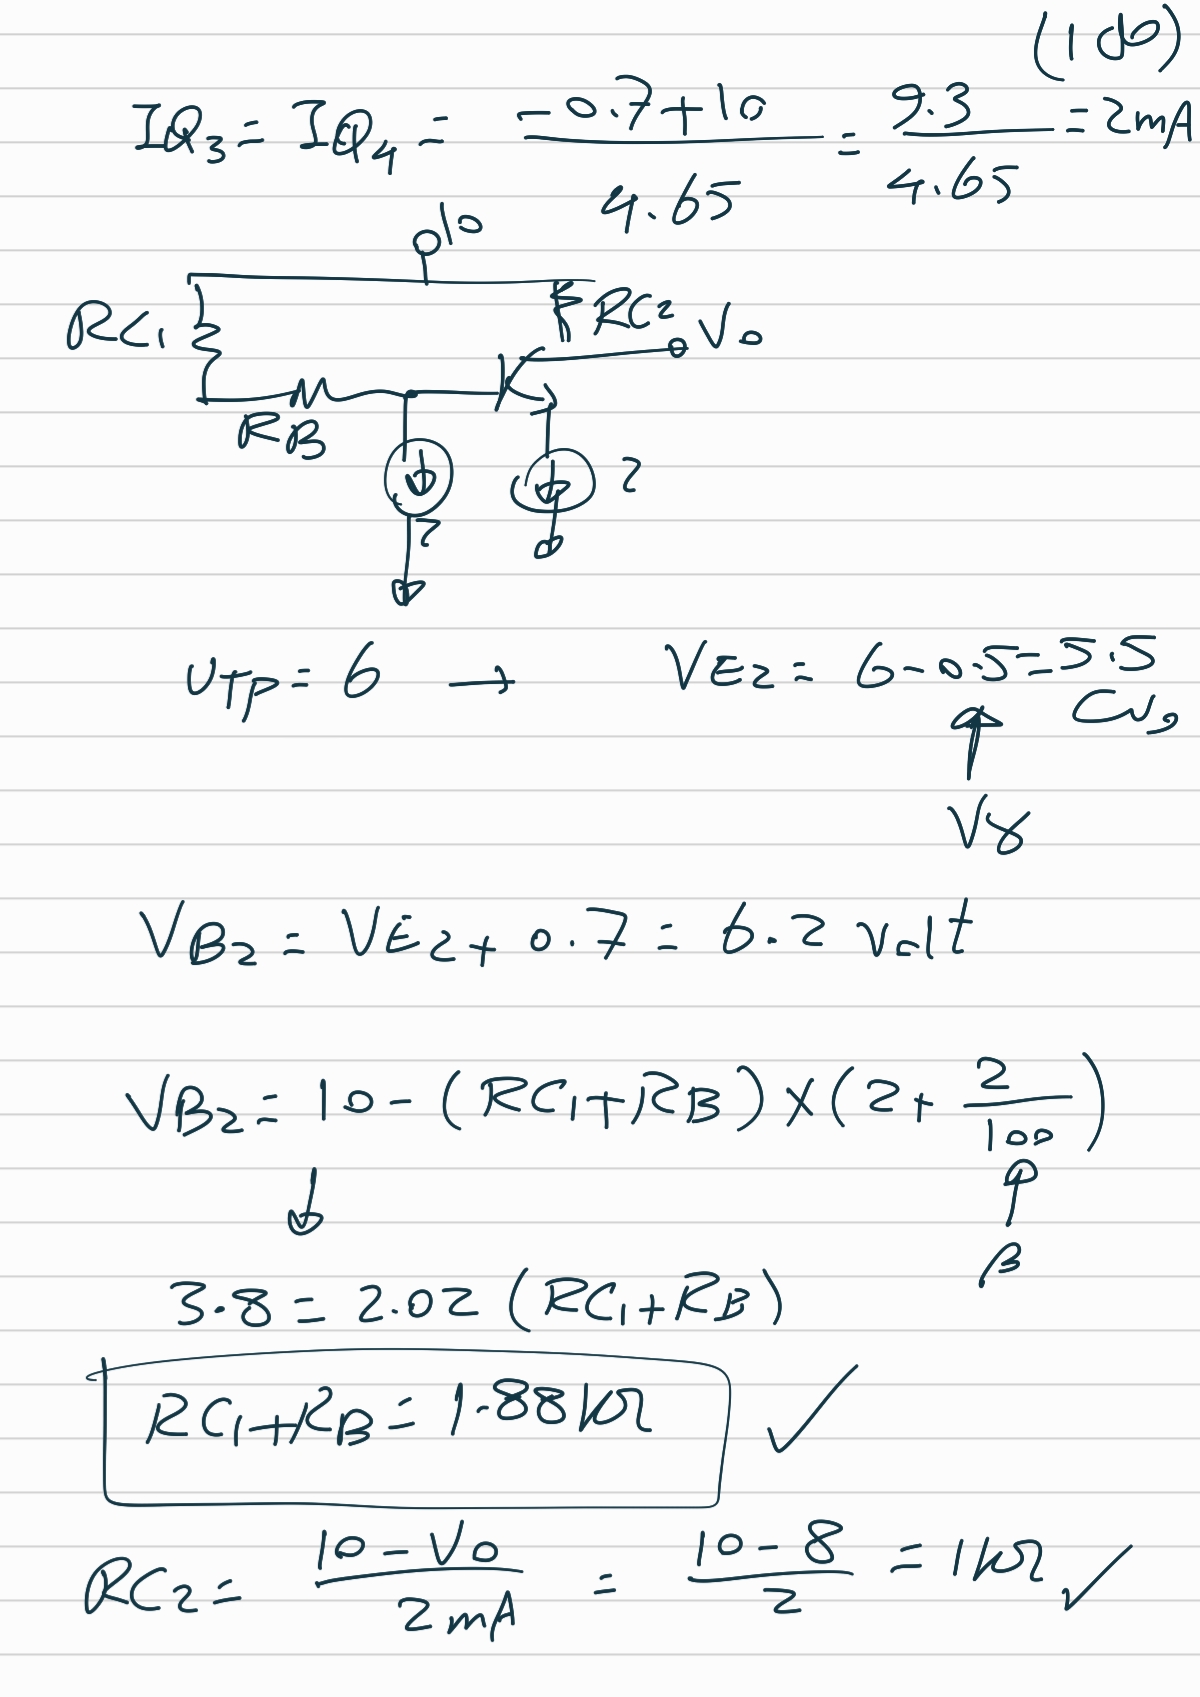 (1 db)
IQ3 = IQ4 = (-0.7+10)/4.65 = 9.3/4.65 = 2mA
10
RC1 RC2 Vo
RB
2
2
UTP = 6 → VE2 = 6-0.5 = 5.5
Vγ
VB2 = VE2 + 0.7 = 6.2 volt
VB2 = 10 - (RC1+RB) × (2 + 2/100)
↓ ↑
β
3.8 = 2.02 (RC1+RB)
RC1+RB = 1.88kΩ ✓
RC2 = (10-Vo)/2mA = (10-8)/2 = 1kΩ ✓